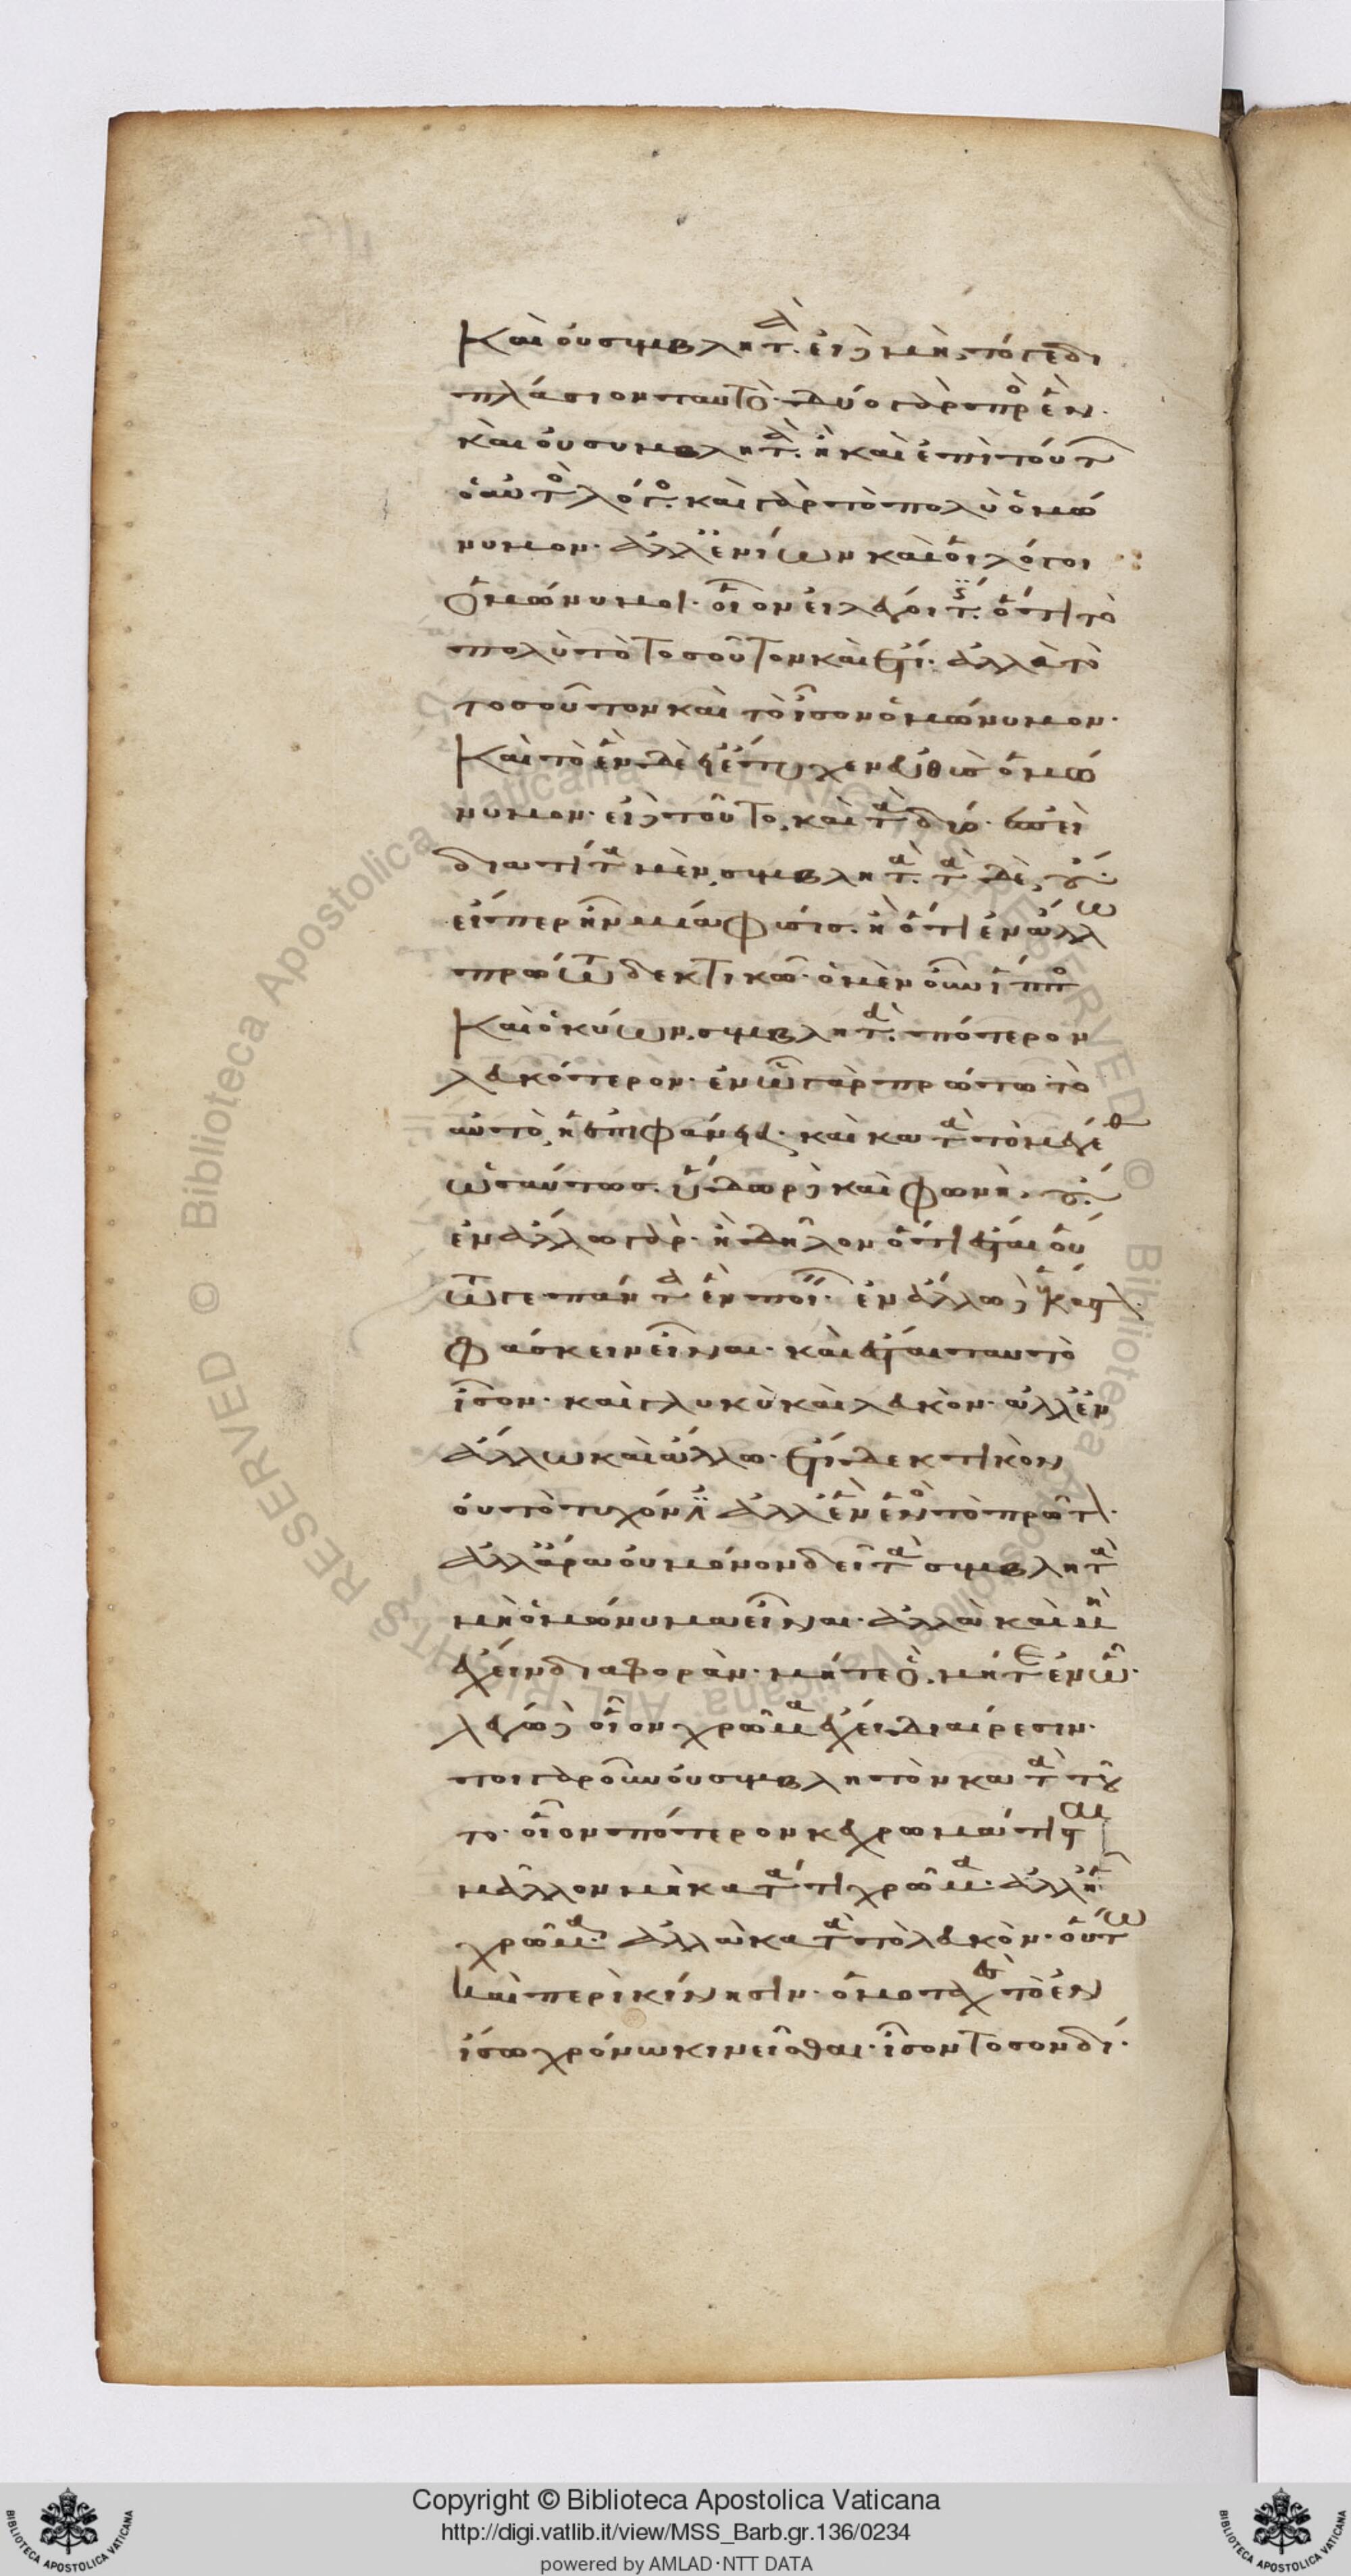 Καὶ οὐ συμβλητά. εἰ δὲ μὴ, τό γε δι
πλάσιον ταυτό· δύο γὰρ πρὸς ἕν.
καὶ οὐ συμβλητά. ἢ καὶ ἐπὶ τούτων
ὁ αὐτὸς λόγος. καὶ γὰρ τὸ πολὺ ὁμώ
νυμον. ἀλλ' ἐνίων καὶ οἱ λόγοι
ὁμώνυμοι. οἷον εἰ λέγοι τις. ὅτι τὸ
πολὺ τὸ τοσοῦτον καὶ ἔτι. ἀλλὰ τὸ
τοσοῦτον καὶ τὸ ἴσον ὁμώνυμον.
Καὶ τὸ ἓν δὲ εἰ ἔτυχεν εὐθὺς ὁμώ
νυμον. εἰ δὲ τοῦτο, καὶ τὰ δύο. ἐπεὶ
διατί τὰ μὲν συμβλητά. τὰ δὲ, οὔ.
εἴπερ ἦν μία φύσις. ἢ ὅτι ἐν ἄλλω
πρώτω δεκτικῶ. ὁ μὲν οὖν ἵππος
Καὶ ὁ κύων, συμβλητά. πότερον
λευκότερον. ἐν ὧ γὰρ πρώτω τὸ
αὐτὸ, ἡ ἐπιφάνεια. καὶ κατὰ τὸ μέγεθος
ὡσαύτως. ὕδωρ δὲ καὶ φωνὴ, οὔ.
ἐν ἄλλω γάρ. ἢ δῆλον ὅτι ἔσται οὕ
τω γε πάντα ἓν ποιεῖν. ἐν ἄλλω δὲ ἕκαστον
φάσκειν εἶναι. καὶ ἔσται ταυτὸ
ἴσον. καὶ γλυκὺ καὶ λευκόν. ἀλλ' ἐν
ἄλλω καὶ ἄλλο. ἔτι δεκτικὸν
οὐ τὸ τυχόν ἐστιν ἀλλ' ἓν ἑνὸς τὸ πρῶτον.
ἀλλ' ἄρα οὐ μόνον δεῖ τὰ συμβλητὰ
μὴ ὁμώνυμα εἶναι. ἀλλὰ καὶ μὴ
ἔχειν διαφορὰν. μήτε ὃ. μήτε ἐν ὧ.
λέγω δὲ οἷον χρῶμα ἔχει διαίρεσιν.
τοιγαροῦν οὐ συμβλητὸν κατὰ τοῦ
το. οἷον πότερον κεχρωμάτισται
μᾶλλον μὴ κατά τι χρῶμα. ἀλλ' ἧ
χρῶμα. ἀλλὰ κατὰ τὸ λευκόν. οὕτω
καὶ περὶ κίνησιν. ὁμοταχὲς τὸ ἐν
ἴσω χρόνω κινεῖσθαι. ἴσον τοσονδί.
Copyright © Biblioteca Apostolica Vaticana
http://digi.vatlib.it/view/MSS_Barb.gr.136/0234
powered by AMLAD·NTT DATA